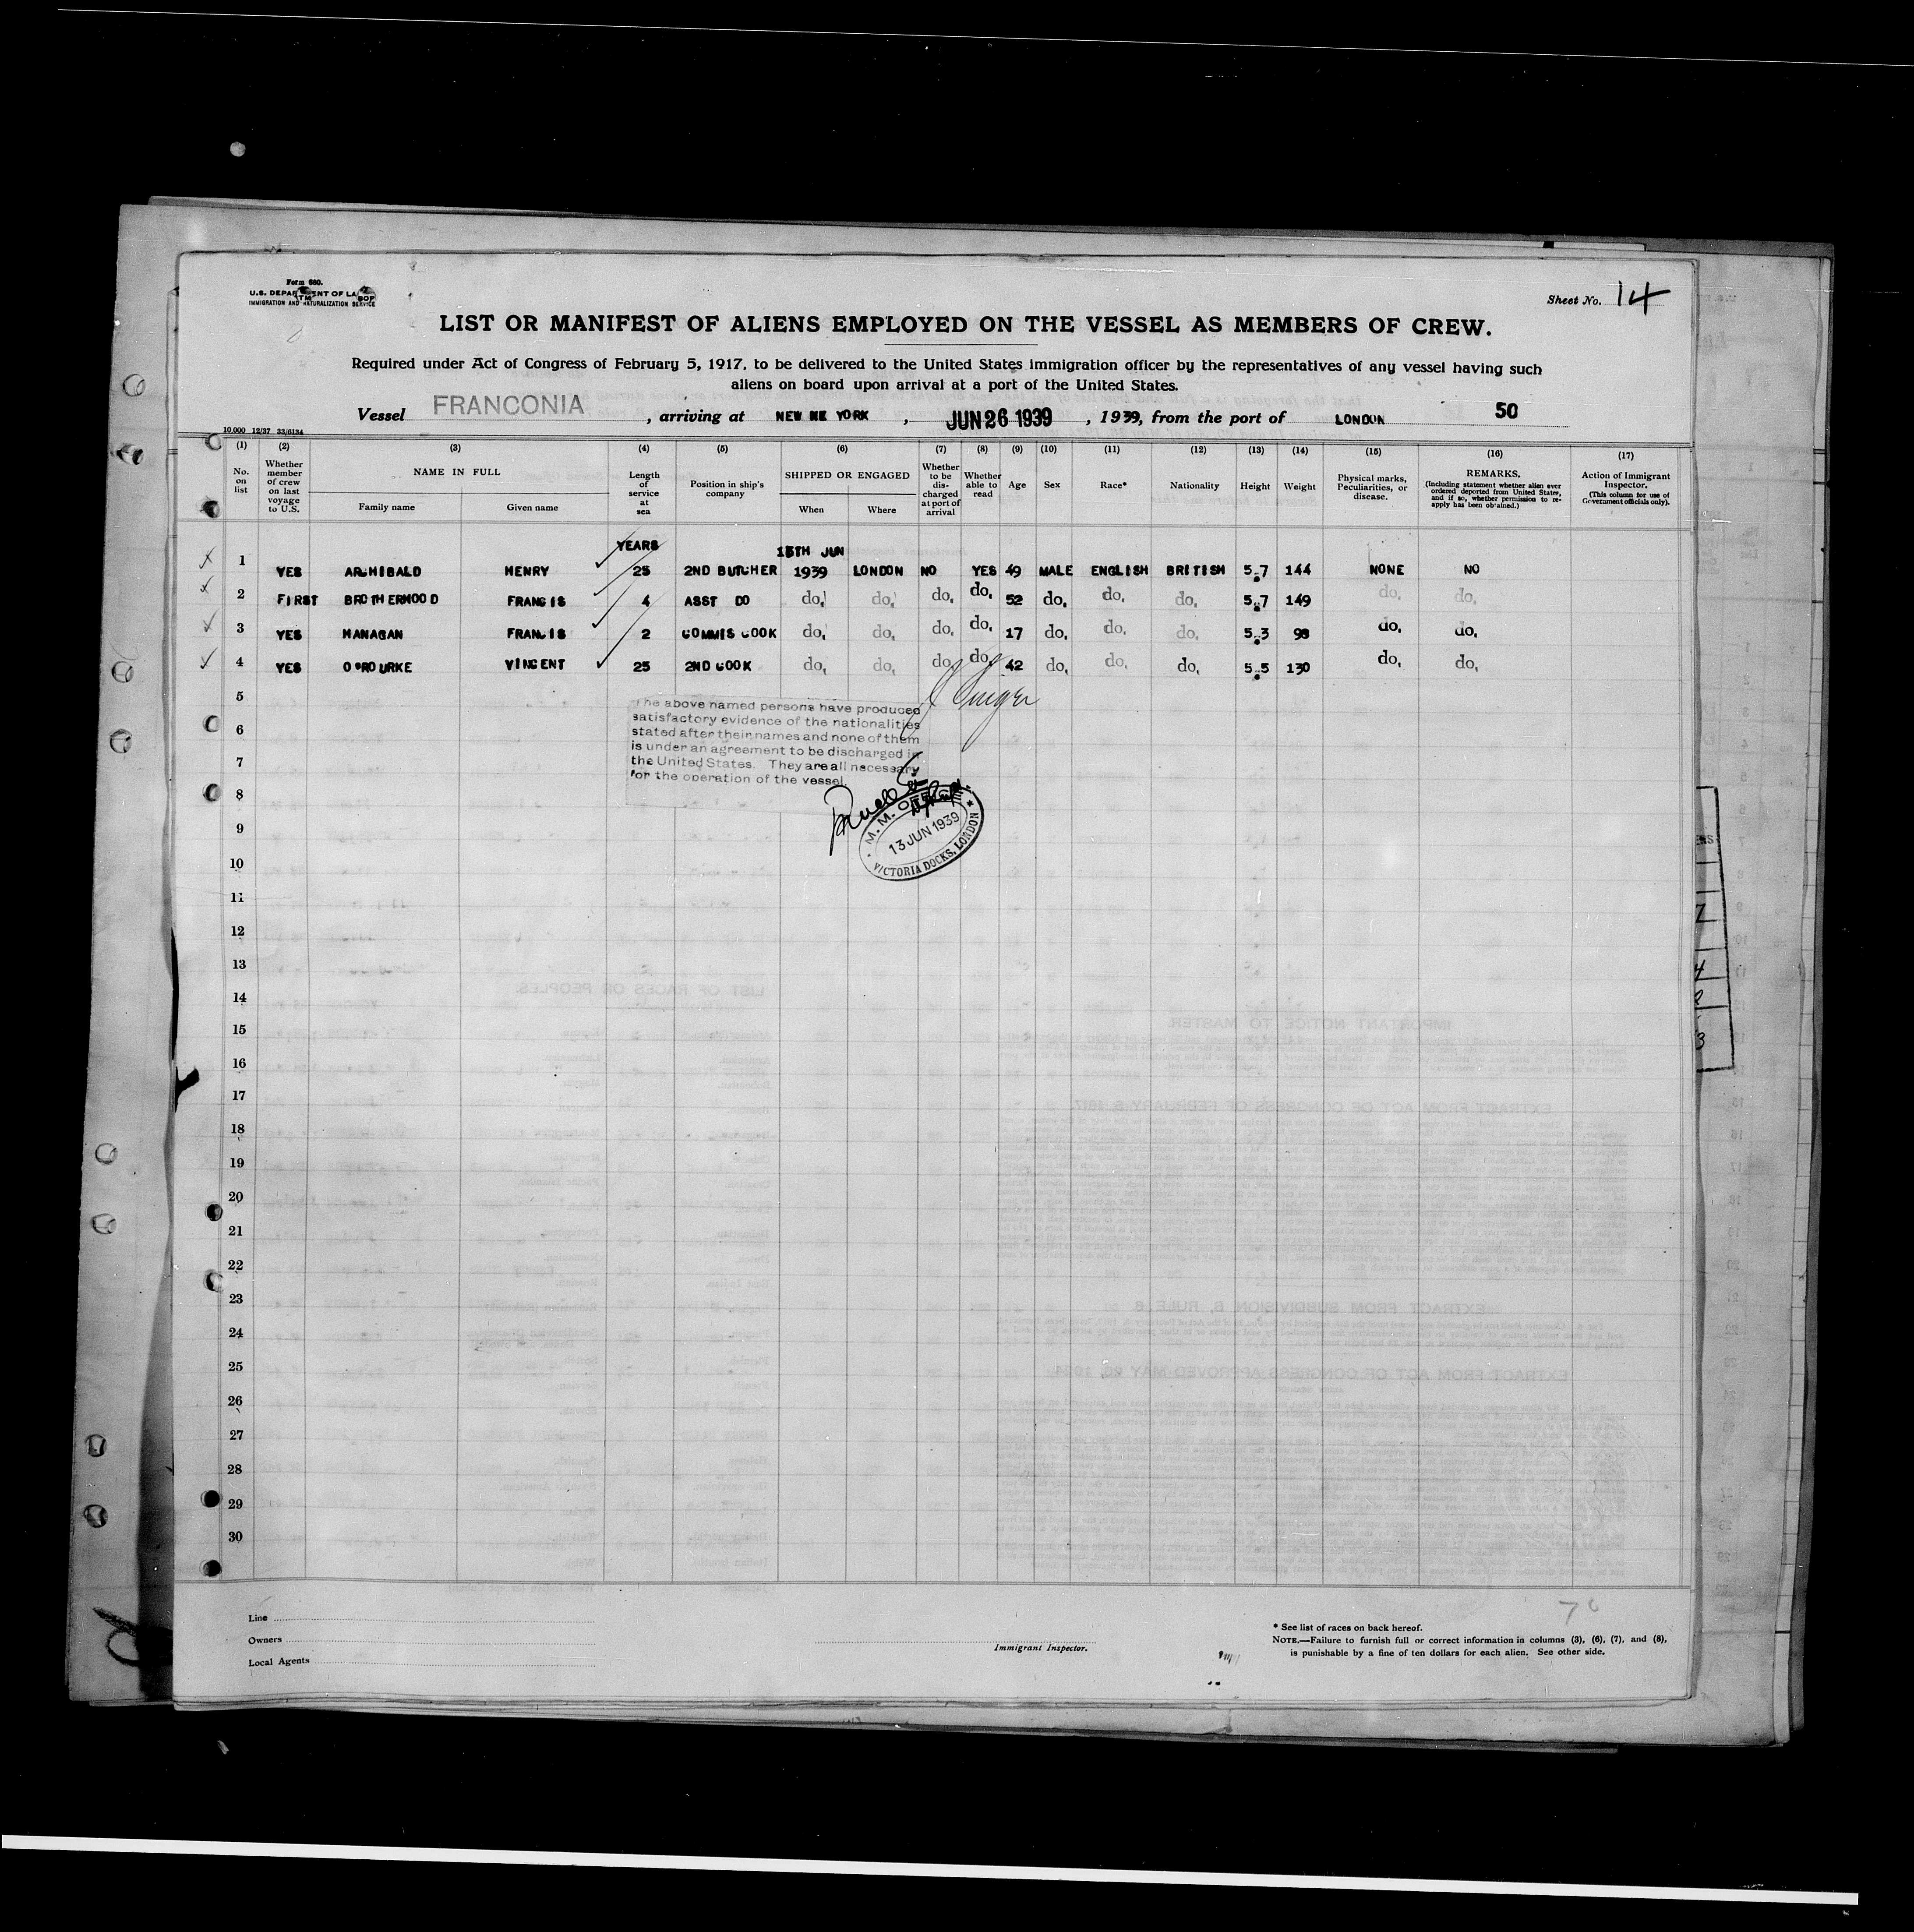 Form 680.
U.S. DEPARTMENT OF LABOR
IMMIGRATION AND NATURALIZATION SERVICE
Sheet No. 14
LIST OR MANIFEST OF ALIENS EMPLOYED ON THE VESSEL AS MEMBERS OF CREW.
Required under Act of Congress of February 5, 1917, to be delivered to the United States immigration officer by the representatives of any vessel having such
aliens on board upon arrival at a port of the United States.
Vessel FRANCONIA, arriving at NEW YORK, JUN 26 1939, 1939, from the port of LONDON 50
10,000 12/37 33/6134
(1) (2) (3) (4) (5) (6) (7) (8) (9) (10) (11) (12) (13) (14) (15) (16) (17)
No. on list
Whether member of crew on last voyage to U.S.
NAME IN FULL
Family name Given name
Length of service at sea
Position in ship's company
SHIPPED OR ENGAGED
When Where
Whether to be discharged at port of arrival
Whether able to read
Age Sex Race* Nationality Height Weight
Physical marks, Peculiarities, or disease.
REMARKS.
(Including statement whether alien ever ordered deported from United States, and if so, whether permission to re-apply has been obtained.)
Action of Immigrant Inspector.
(This column for use of Government officials only).
YEARS 15TH JUN
1 YES ARCHIBALD HENRY 25 2ND BUTCHER 1939 LONDON NO YES 49 MALE ENGLISH BRITISH 5.7 144 NONE NO
2 FIRST BROTHERHOOD FRANCIS 4 ASST DO do, do, do, do, 52 do, do, do, 5.7 149 do, do,
3 YES MANAGAN FRANCIS 2 COMMIS COOK do, do, do, do, 17 do, do, do, 5.3 98 do, do,
4 YES O'ROURKE VINCENT 25 2ND COOK do, do, do, do, 42 do, do, do, 5.5 130 do, do,
5
The above named persons have produced
satisfactory evidence of the nationalities
stated after their names and none of them
6
is under an agreement to be discharged in
7
the United States. They are all necessary
for the operation of the vessel.
8
M. M. OFFICE
13 JUN 1939
VICTORIA DOCKS, LONDON
9
10
11
12
13
14
15
16
17
18
19
20
21
22
23
24
25
26
27
28
29
30
Line
Owners
Local Agents
Immigrant Inspector.
* See list of races on back hereof.
NOTE.—Failure to furnish full or correct information in columns (3), (6), (7), and (8),
is punishable by a fine of ten dollars for each alien. See other side.